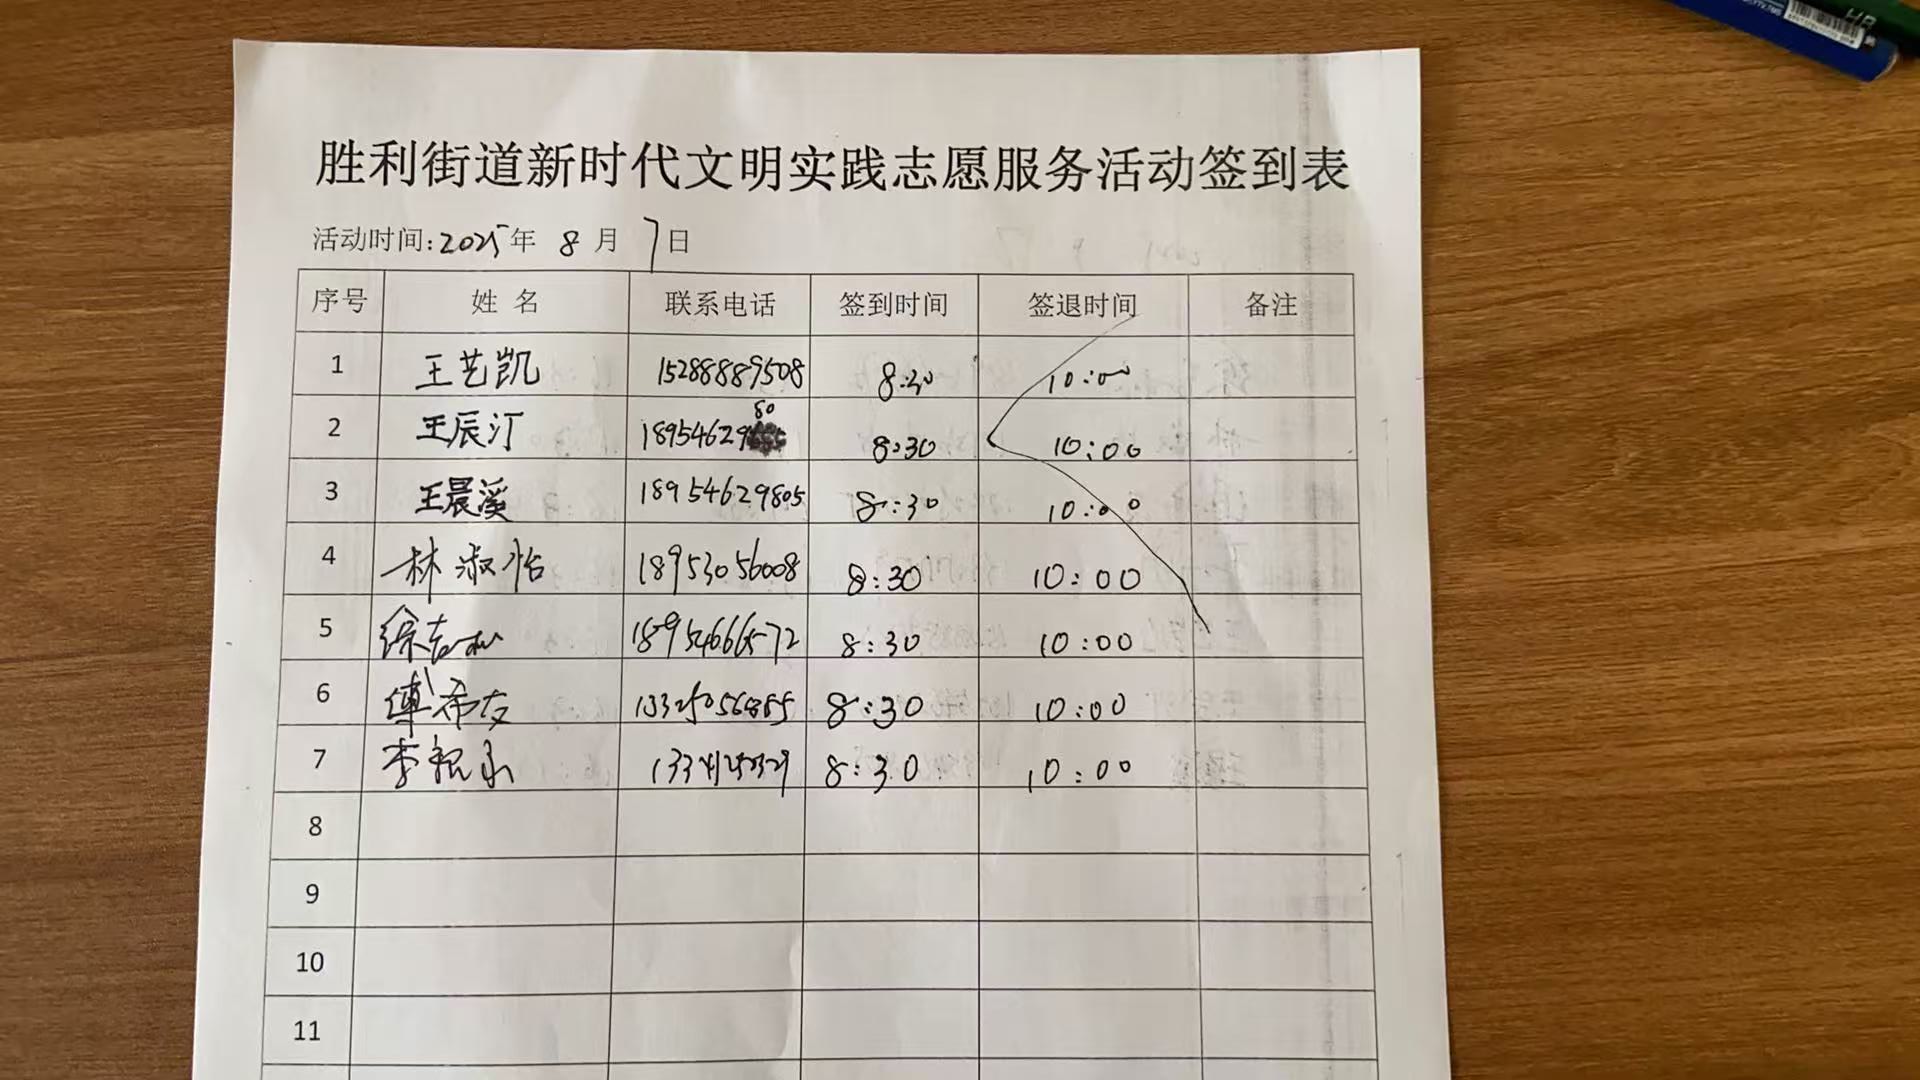 胜利街道新时代文明实践志愿服务活动签到表
活动时间:2025年 8 月 7日
序号 姓 名 联系电话 签到时间 签退时间 备注
1 王艺凯 15288889508 8:30 10:00
2 王辰汀 189546298 80 8:30 10:00
3 王晨溪 18954629805 8:30 10:00
4 林淑怡 18953056008 8:30 10:00
5 徐吉 18954666572 8:30 10:00
6 傅希友 8:30 10:00
7 李 永 8:30 10:00
8
9
10
11